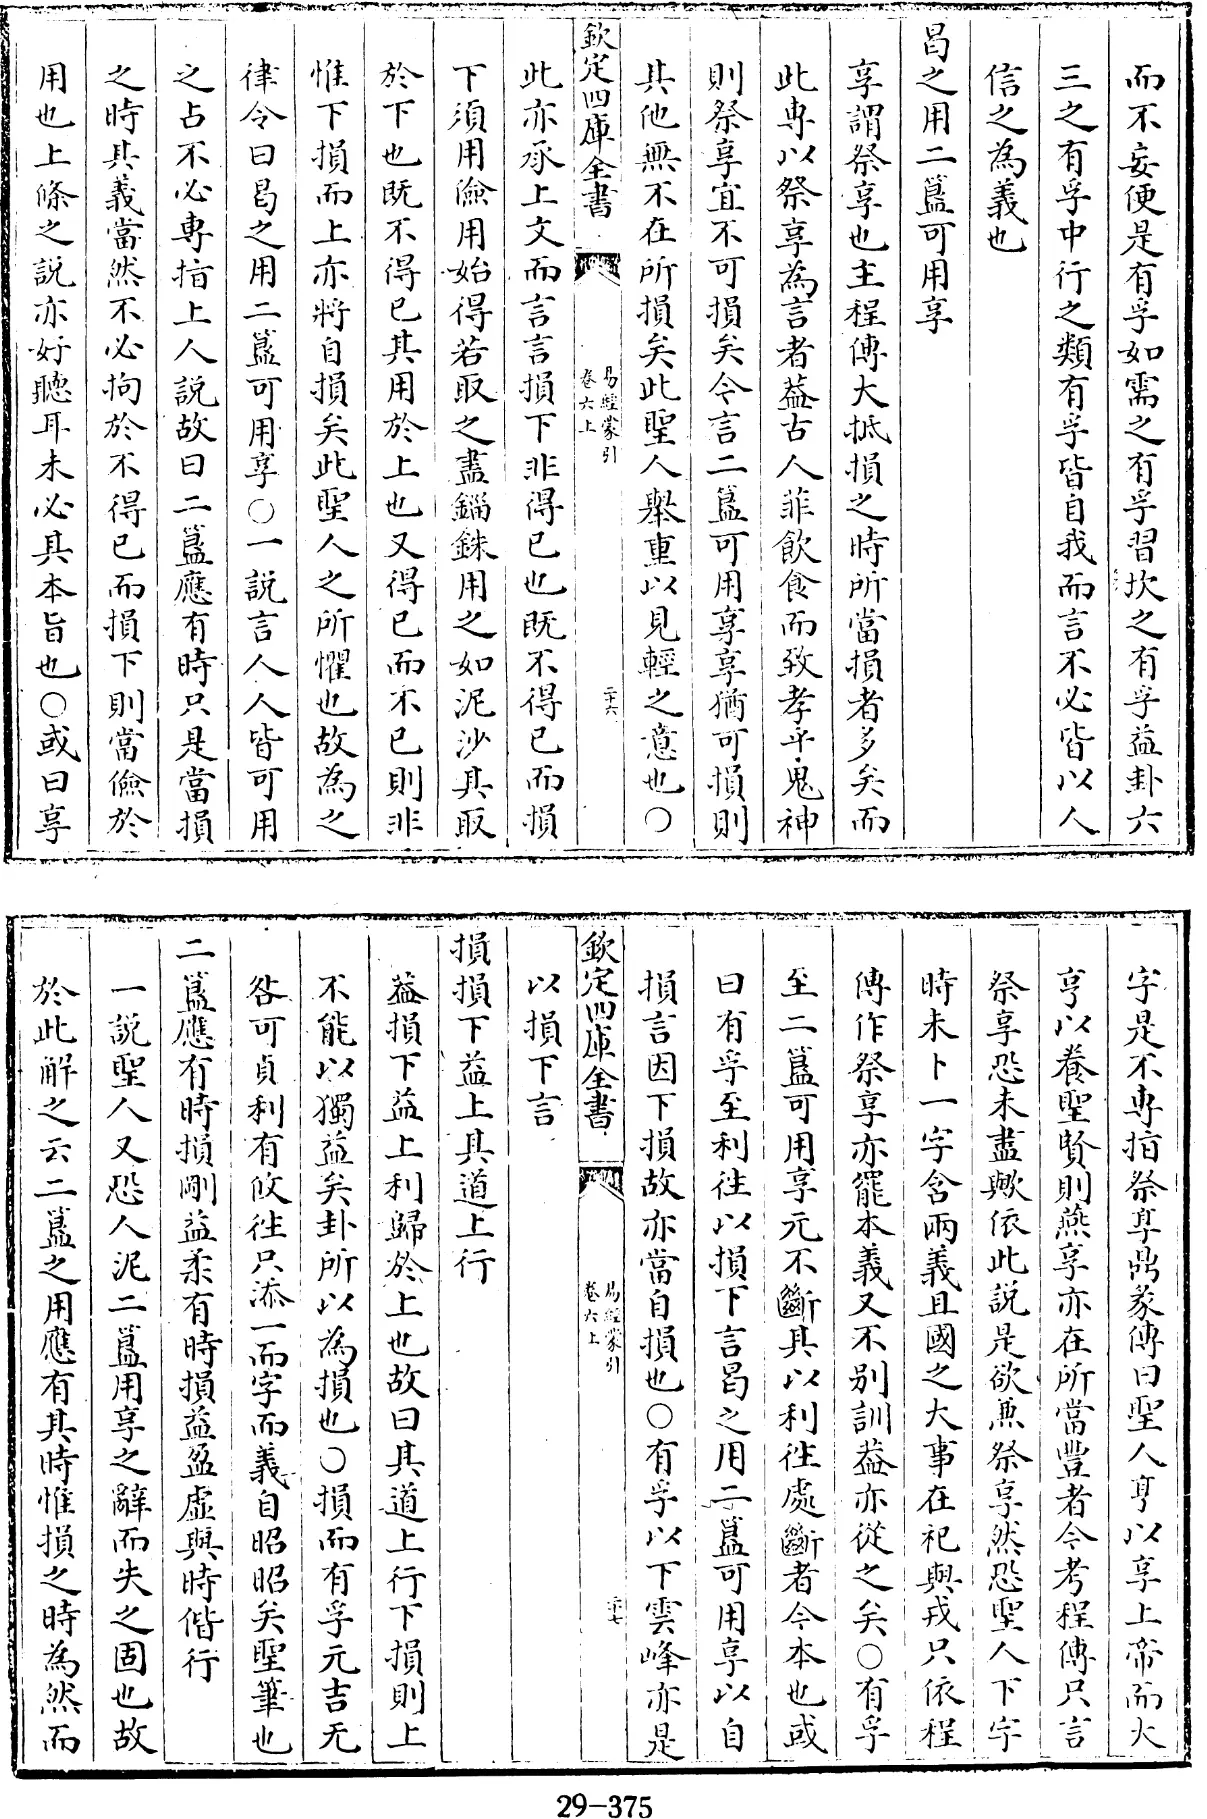 而不妄便是有孚如需之有孚習坎之有孚益卦六
三之有孚中行之類有孚皆自我而言不必皆以人
信之為義也
曷之用二簋可用享
享謂祭享也主程傳大抵損之時所當損者多矣而
此專以祭享為言者葢古人菲飲食而致孝乎鬼神
則祭享宜不可損矣今言二簋可用享享猶可損則
其他無不在所損矣此聖人舉重以見輕之意也○
欽定四庫全書
易經蒙引
卷六上
二十六
此亦承上文而言言損下非得已也既不得已而損
下須用儉用始得若取之盡錙銖用之如泥沙其取
於下也既不得已其用於上也又得已而不已則非
惟下損而上亦將自損矣此聖人之所懼也故為之
律令曰曷之用二簋可用享○一說言人人皆可用
之占不必專指上人說故曰二簋應有時只是當損
之時其義當然不必拘於不得已而損下則當儉於
用也上條之說亦好聽耳未必其本旨也○或曰享
字是不專指祭享鼎彖傳曰聖人亨以享上帝而大
亨以養聖賢則燕享亦在所當豐者今考程傳只言
祭享恐未盡歟依此說是欲兼祭享然恐聖人下字
時未卜一字含兩義且國之大事在祀與戎只依程
傳作祭享亦罷本義又不别訓葢亦從之矣○有孚
至二簋可用享元不斷其以利往處斷者今本也或
曰有孚至利往以損下言曷之用二簋可用享以自
損言因下損故亦當自損也○有孚以下雲峰亦是
欽定四庫全書
易經蒙引
卷六上
二十七
以損下言
損損下益上其道上行
葢損下益上利歸於上也故曰其道上行下損則上
不能以獨益矣卦所以為損也○損而有孚元吉无
咎可貞利有攸往只添一而字而義自昭昭矣聖筆也
二簋應有時損剛益柔有時損益盈虛與時偕行
一說聖人又恐人泥二簋用享之辭而失之固也故
於此解之云二簋之用應有其時惟損之時為然而
29-375